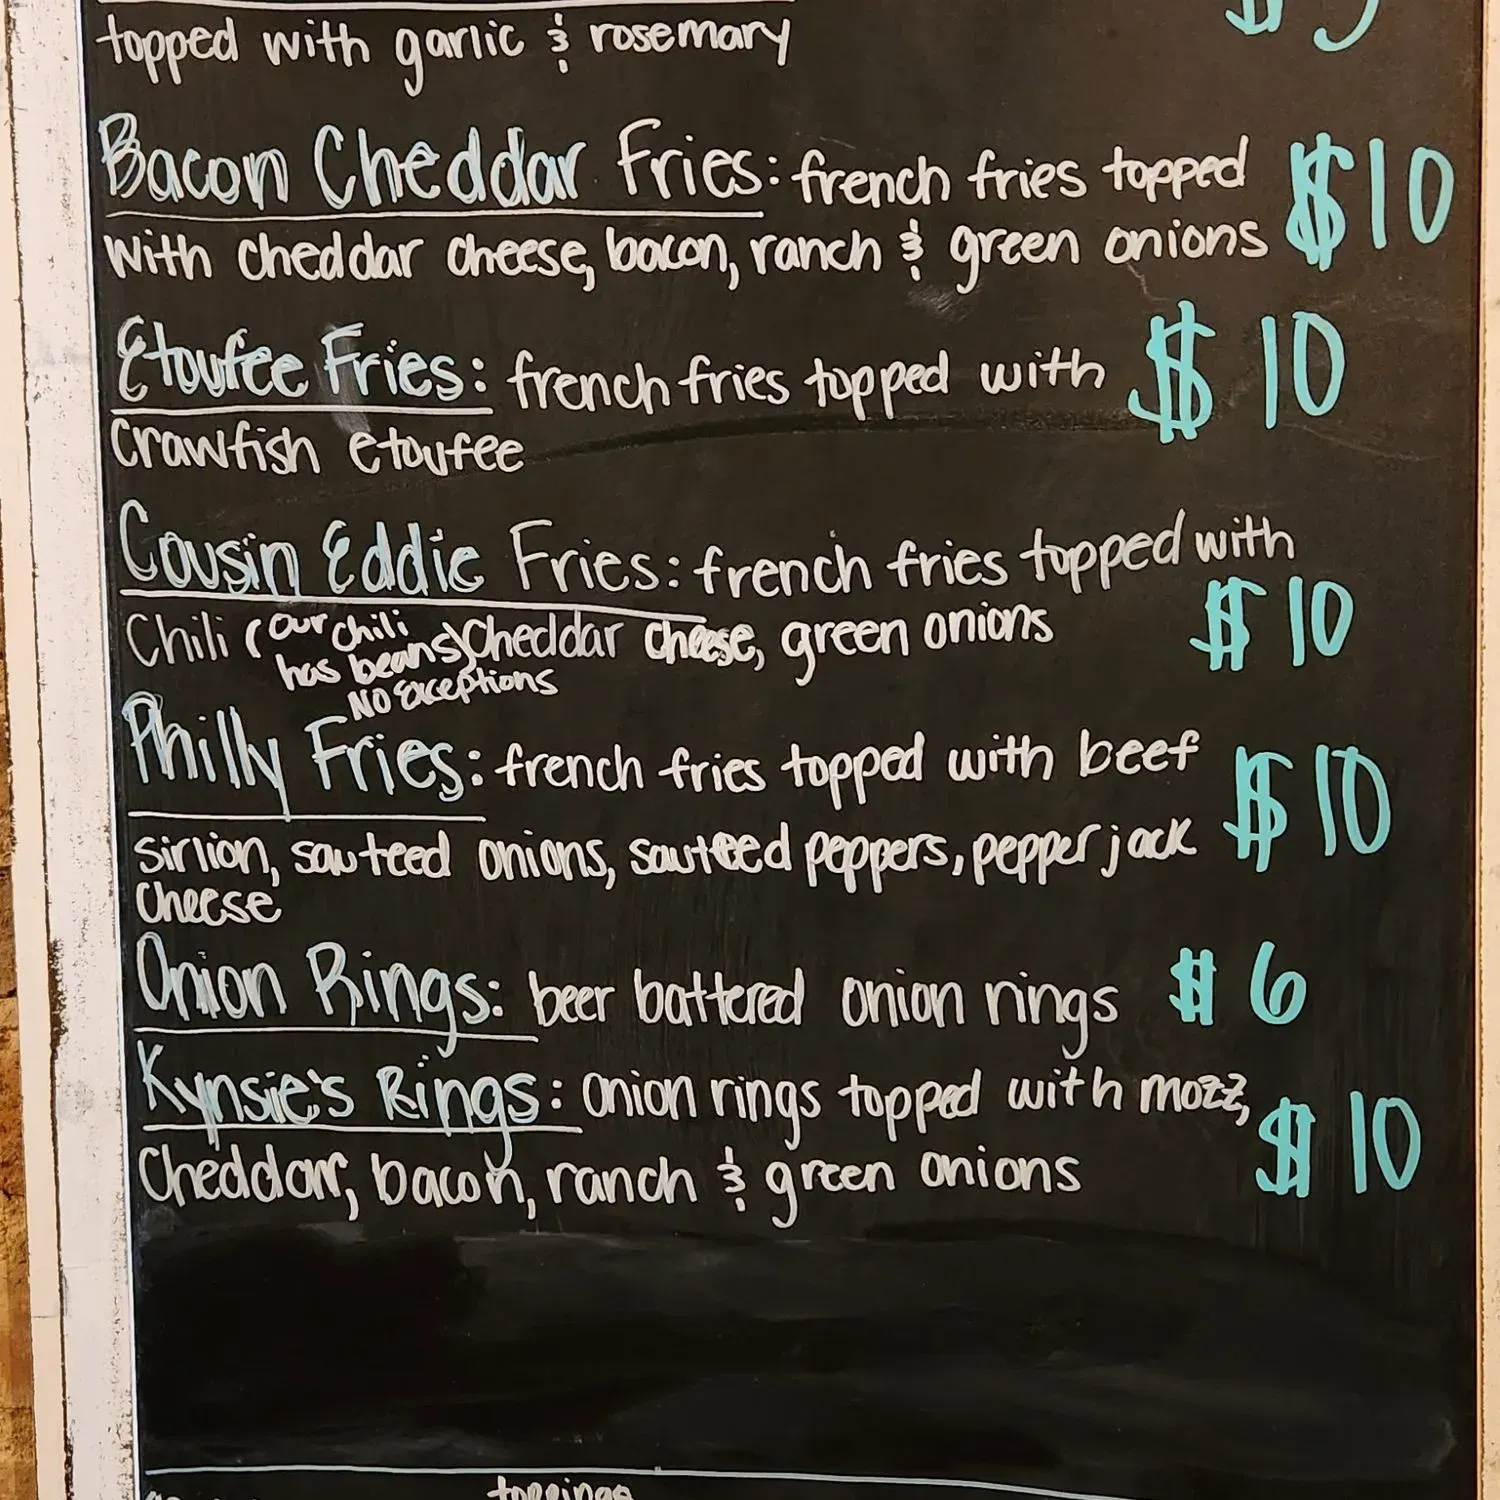 topped with garlic & rosemary
Bacon Cheddar Fries: french fries topped $10
with cheddar cheese, bacon, ranch & green onions
Etoufee Fries: french fries topped with $10
crawfish etoufee
Cousin Eddie Fries: french fries topped with
Chili (our chili has beans) Cheddar cheese, green onions $10
NO Exceptions
Philly Fries: french fries topped with beef $10
sirlion, sauteed onions, sauteed peppers, pepper jack
cheese
Onion Rings: beer battered onion rings $6
Kynsie's Rings: onion rings topped with mozz, $10
Cheddar, bacon, ranch & green onions
toppings